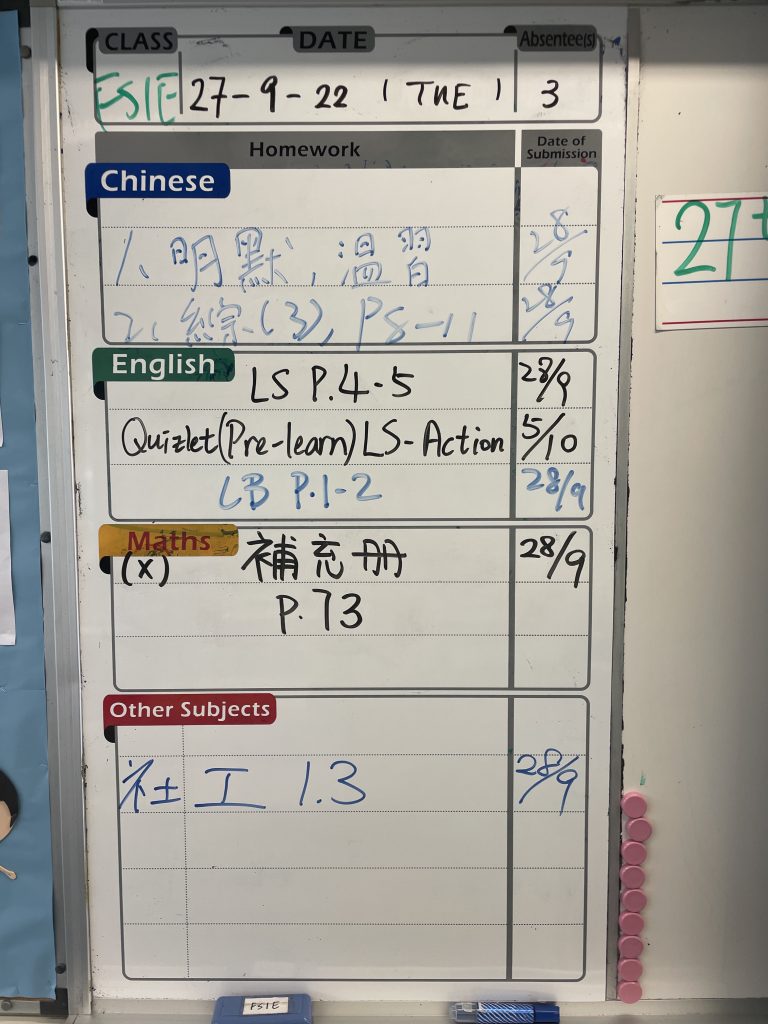 CLASS DATE Absentee(s)
FS1E 27-9-22 (TUE) 3
Homework Date of Submission
Chinese
1、明默，溫習 28/9
2、綜(3), P8-11 28/9
English
LS P.4-5 28/9
Quizlet(Pre-learn)LS-Action 5/10
LB P.1-2 28/9
Maths
(x) 補充冊 28/9
P.73
Other Subjects
社 工1.3 28/9
27
FS1E